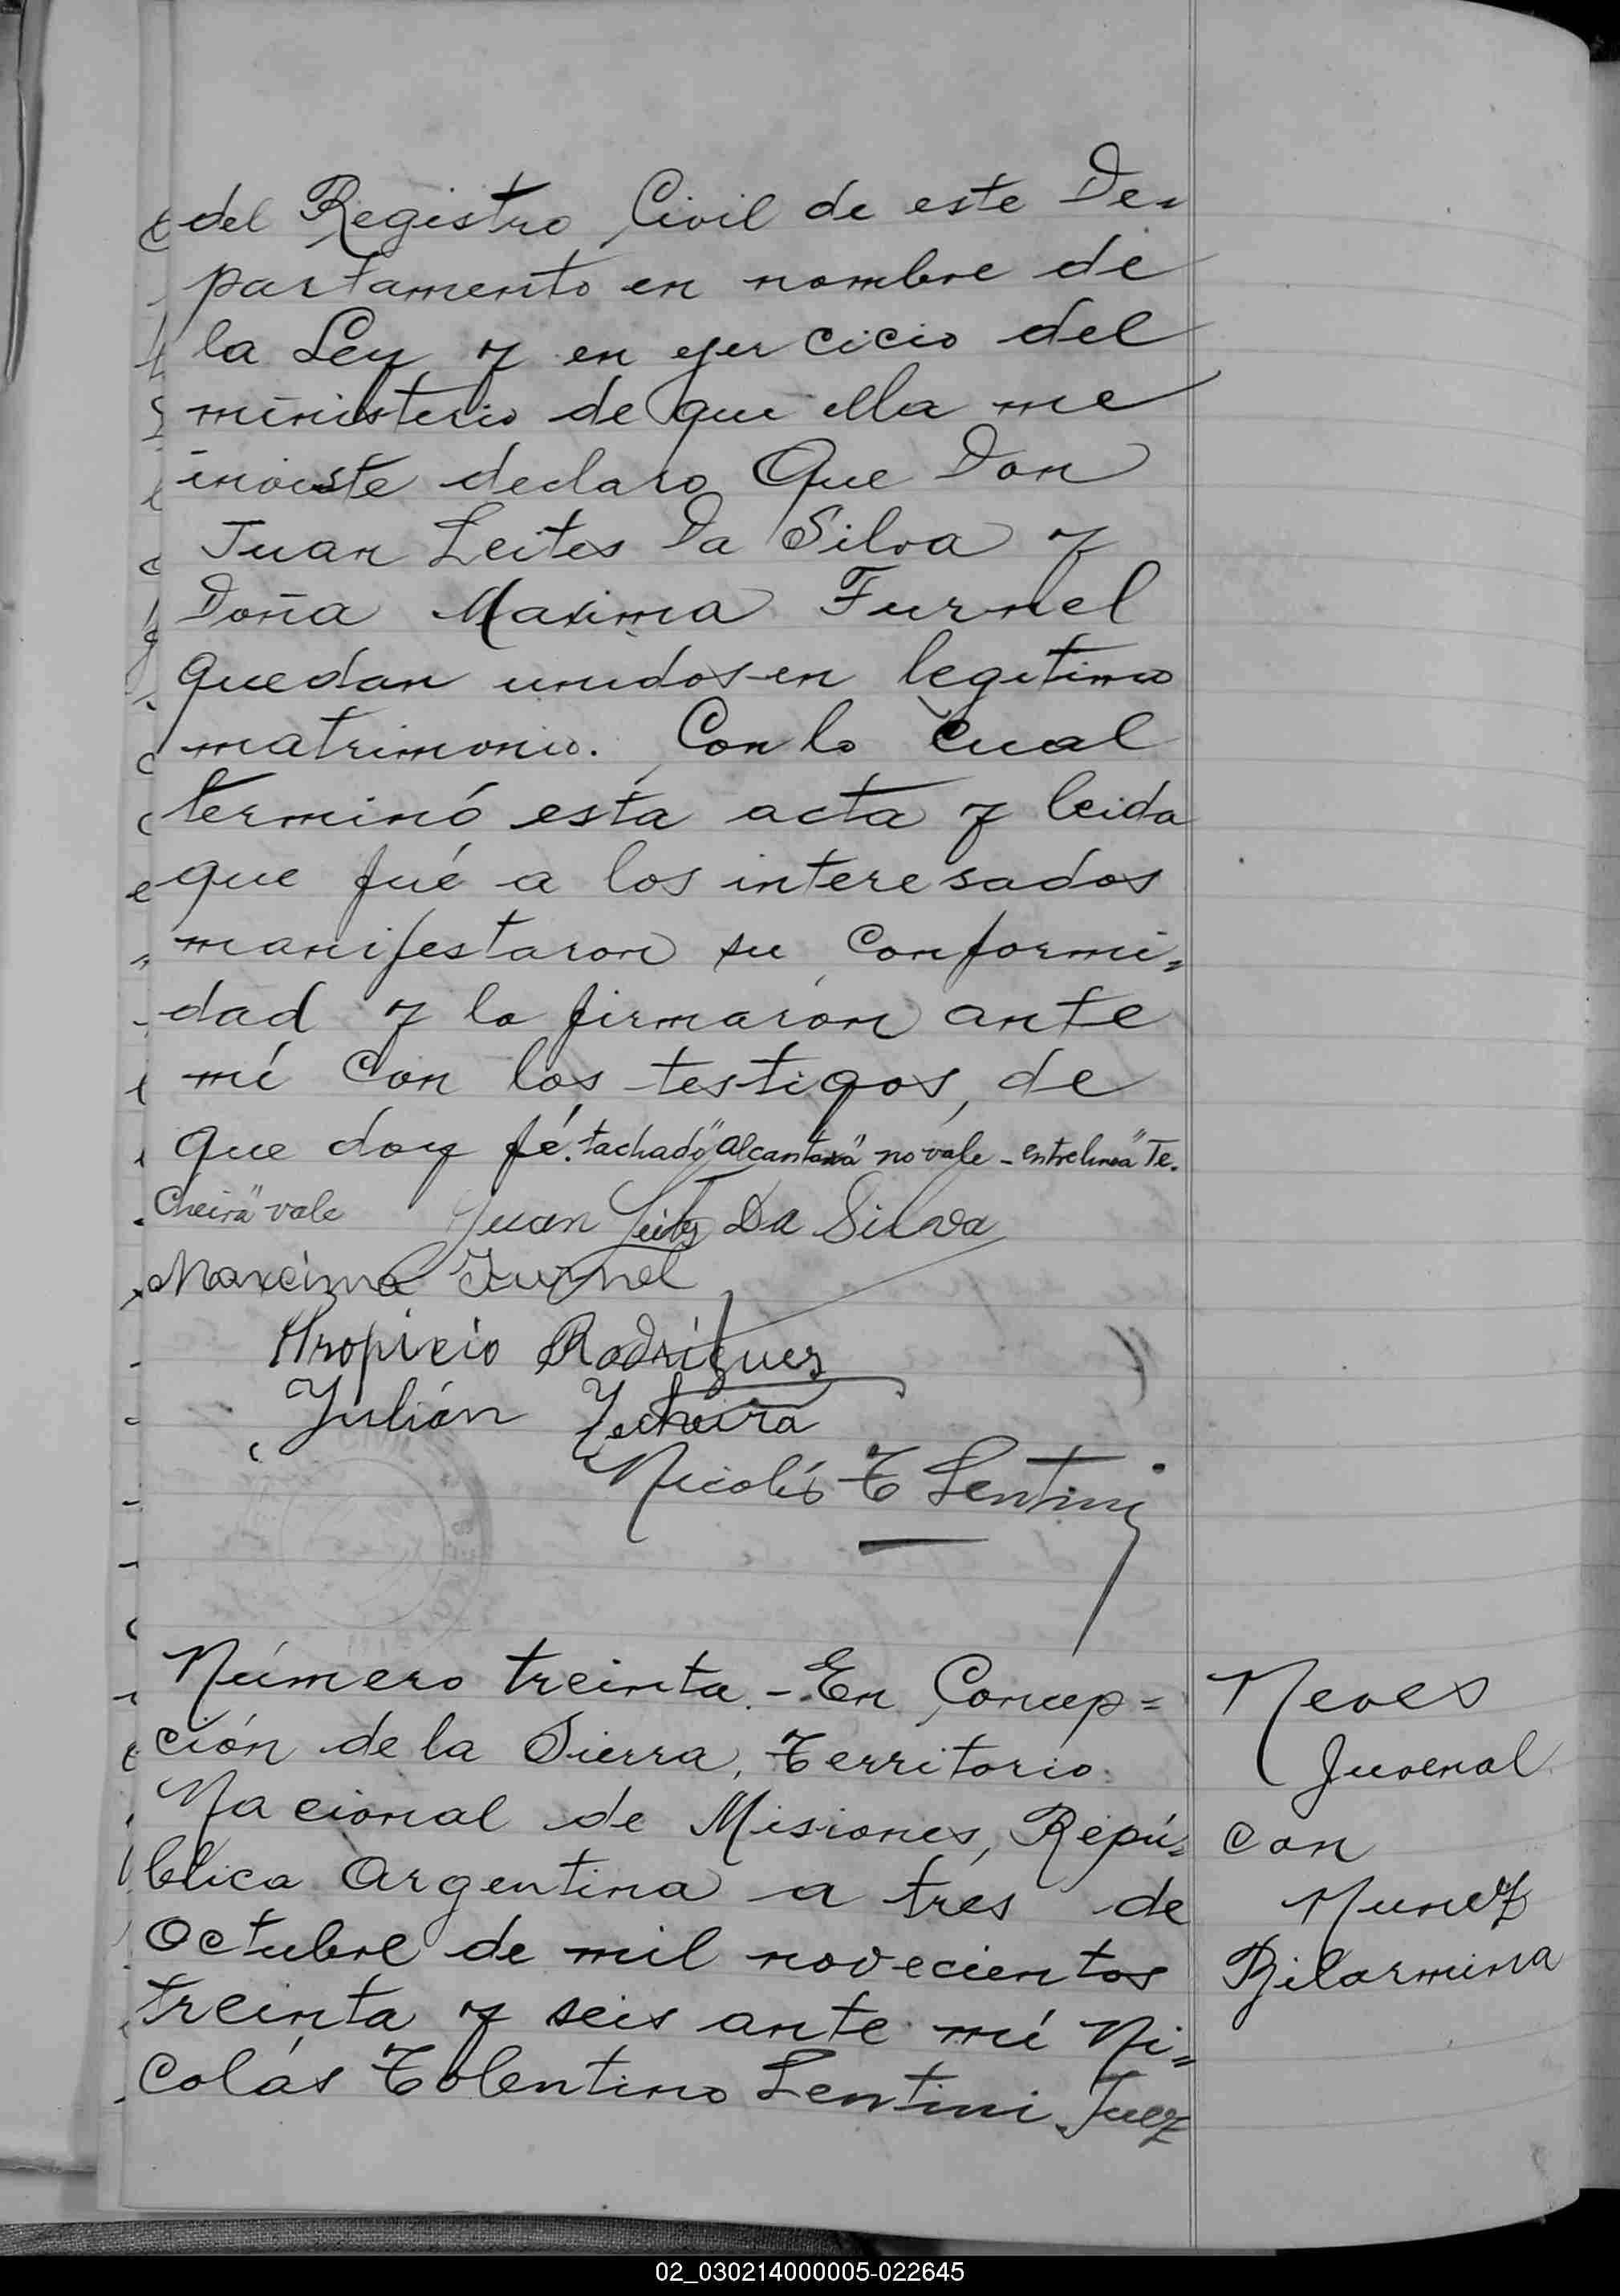 del Registro Civil de este De=
partamento en nombre de
la Ley y en ejercicio del
ministerio de que ella me
inviste declaro Que Don
Juan Leites Da Silva y
Doña Maxima Furnel
quedan unidos en legitimo
matrimonio. Con lo cual
terminó esta acta y leida
que fué a los interesados
manifestaron su conformi=
dad y la firmaron ante
mí con los testigos, de
que doy fé. tachado "Alcantara" no vale - entrelinea "Te.
cheira" vale Juan Leites Da Silva
Maxcima Furnel
Propicio Rodríguez
Julián Techeira
Nicolás T Lentini
Número treinta. - En Concep=
ción de la Sierra, Territorio
Nacional de Misiones, Repú=
blica Argentina a tres de
Octubre de mil novecientos
treinta y seis ante mí Ni=
colás Tolentino Lentini Juez
Neves
Juvenal
con
Nunez
Bilarmina
02_030214000005-022645